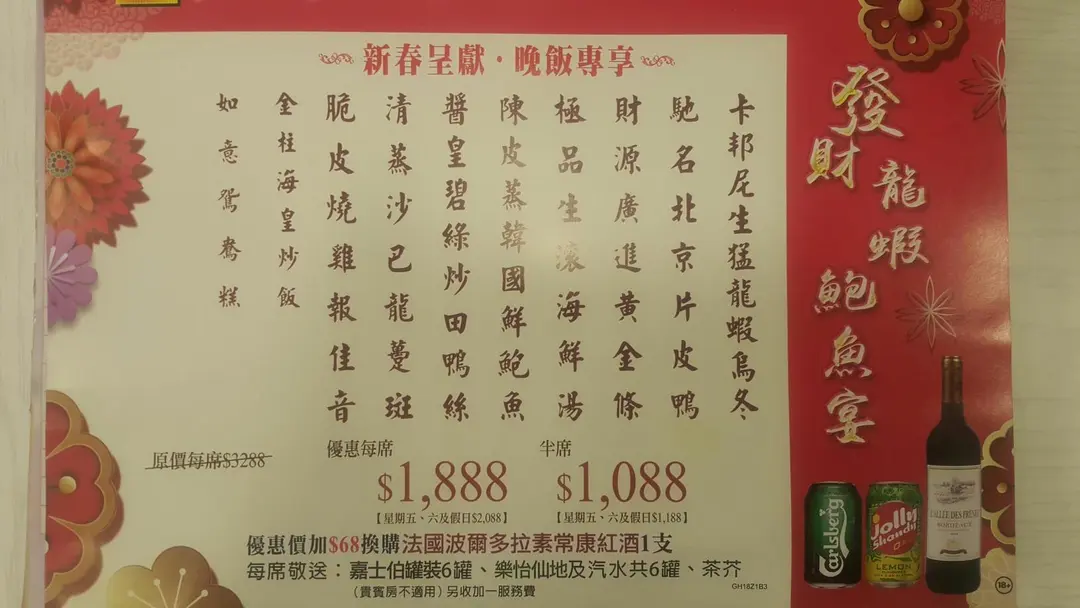 發財龍蝦鮑魚宴
新春呈獻·晚飯專享
卡邦尼生猛龍蝦烏冬
馳名北京片皮鴨
財源廣進黃金條
極品生滾海鮮湯
陳皮蒸韓國鮮鮑魚
醬皇碧綠炒田鴨絲
清蒸沙巴龍躉斑
脆皮燒雞報佳音
金柱海皇炒飯
如意鴛鴦糕
原價每席$3288
優惠每席
$1,888
【星期五、六及假日$2,088】
半席
$1,088
【星期五、六及假日$1,188】
優惠價加$68換購法國波爾多拉素常康紅酒1支
每席敬送：嘉士伯罐裝6罐、樂怡仙地及汽水共6罐、茶芥
(貴賓房不適用) 另收加一服務費
GH18Z1B3
Carlsberg
Jolly
Shandy
LEMON
18+